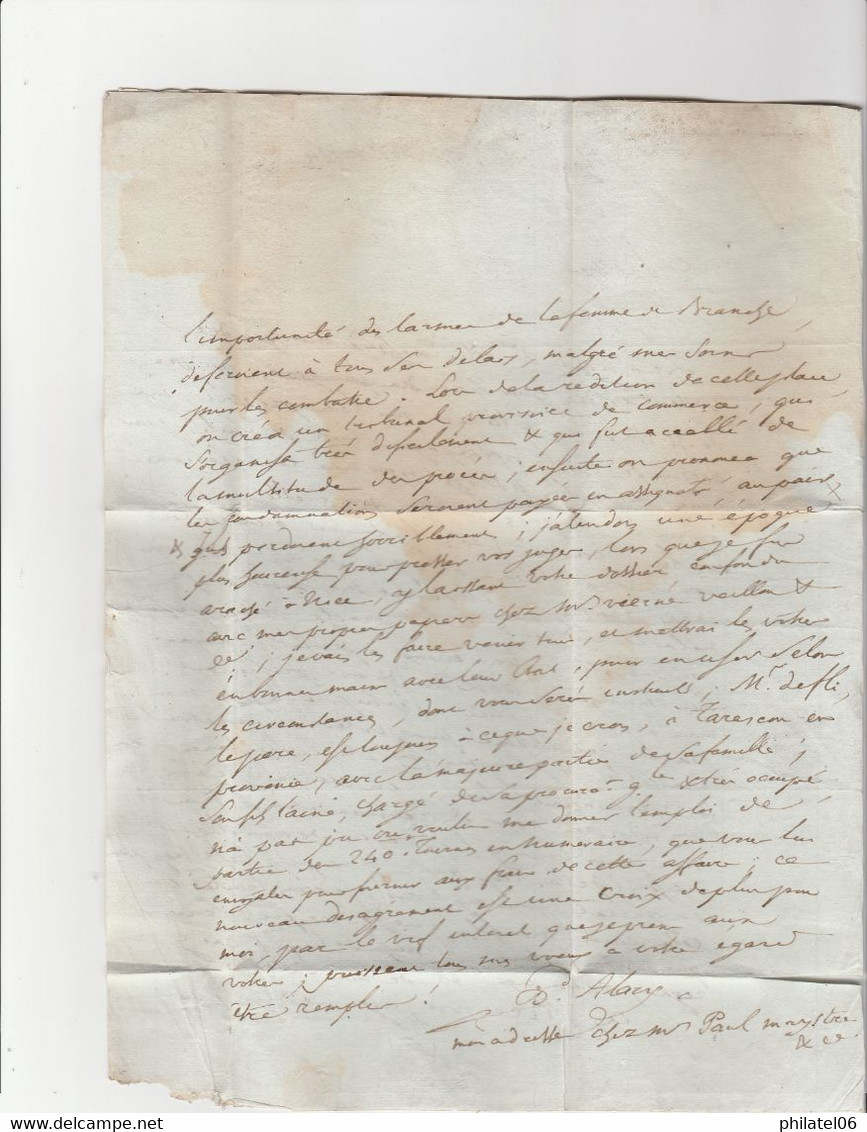 l'importunité des larmes de la femme de Branche,
deferoient à tous ses delais, malgré mes soins
pour les combatre. Lors de la redition de cette place
on créa un tribunal provisoire de commerce, qui
s'organisa très dificilement & qui fut accablé de
la multitude des procès; ensuite on prononça que
les condamnations seroient payées en assignats, au pair,
& qui perdoient horriblement; j'atendois une époque
plus heureuse pour presser vos juges, lors que je fus
à Nice, y laissant votre dossier confondu
avec mes propres papiers chez Mrs. veillon &
Ce; je vais les faire venir tous, et mettrai les votres
en bonne main avec leur état, pour en user selon
les circonstances, dont vous serés instruits; Mr. defli,
le pere, est toujours à ce que je crois, à Tarascon en
provence, avec la majeure partie de sa famille;
son fils l'ainé, chargé de sa procuron. gle. & très occupé
n'a pas pu ou voulu me donner l'emploi de
partie des 240 . Turnois en numeraire, que vous lui
envoyates pour fournir aux frais de cette affaire; ce
nouveau desagrément est une croix de plus pour
moi, par le vif interet que je prens aux
votres; puissent tous mes voeux à votre égard
être remplis!
Dd. Alary
mon adresse chez Mrs Paul maystre
& Ce.
philatel06